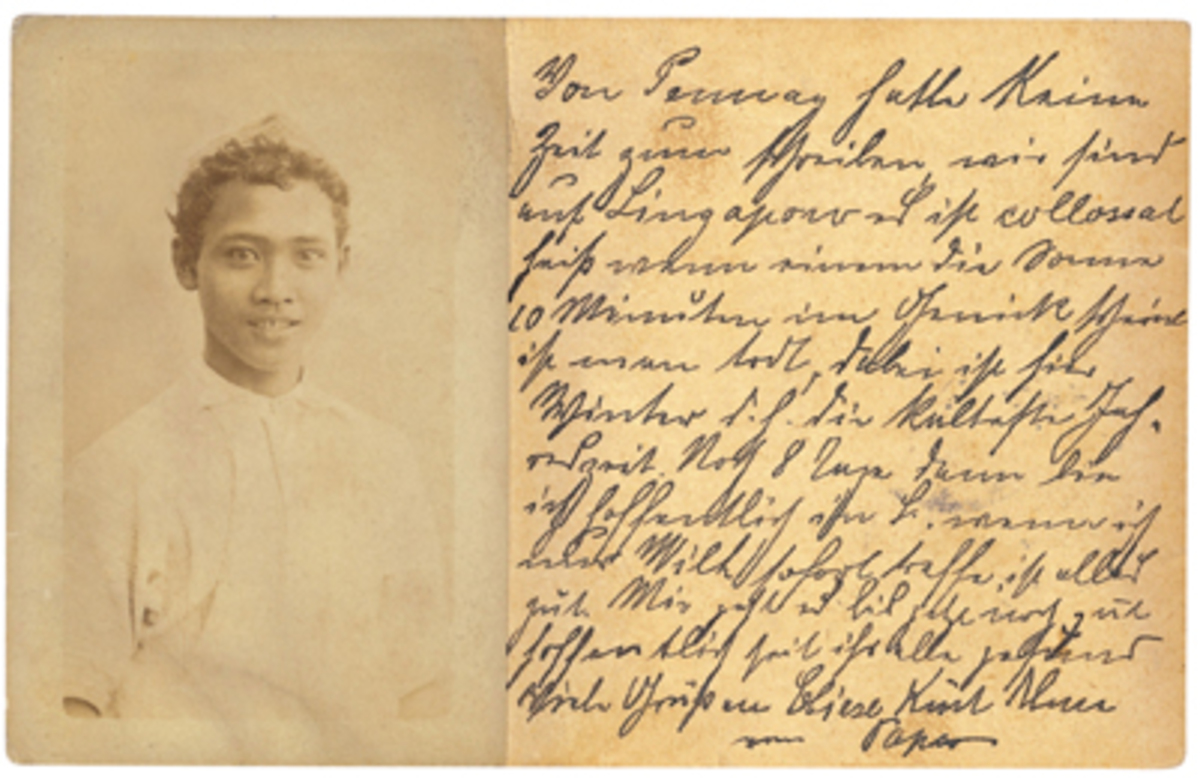 Von Pennag hatte Keine
Zeit zum schreiben, wir sind
auf Singapore es ist collossal
heiß wenn einem die Sonne
10 Minuten im Genick scheint
ist man todt, dabei ist hier
Winter d. h. die kälteste Jah-
reszeit. Noch 8 Tage dann bin
ich hoffentlich in B. wenn ich
nur sofort treffe, ist alles
gut. Mir geht es bis jetzt noch gut
hoffentlich seit ihr alle gesund
Viele Grüße an Kurt
von Papa